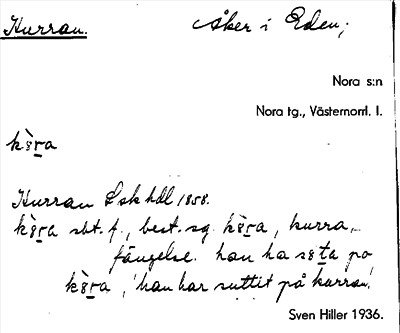 Kurran. Åker i Eden;
Nora s:n
Nora tg., Västernorrl. l.
kȣ̀ra
Kurran Lskhdl 1858.
kȣ̀ra sbt. f., best. sg. kȣ̀ra, kurra,
fängelse. han ha sȣta po
kȣ̀ra, 'han har suttit på kurran'.
Sven Hiller 1936.